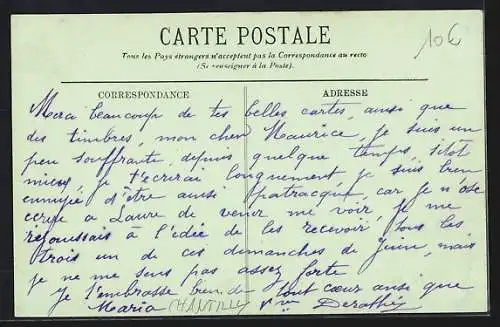 CARTE POSTALE
Tous les Pays étrangers n'acceptent pas la Correspondance au recto
(Se renseigner à la Poste).
10€
CORRESPONDANCE
ADRESSE
Merci beaucoup de tes belles cartes, ainsi que
des timbres, mon cher Maurice, je suis un
peu souffrante, depuis quelque temps, sitôt
mieux, je t'écrirai longuement je suis bien
ennuyée d'être aussi patracque, car je n'ose
écrire a Laure de venir me voir, je me
réjouissais à l'idée de les recevoir tous les
trois un de ces dimanches de Juin, mais
je ne me sens pas assez forte
Je t'embrasse bien de tout cœur ainsi que
Maria